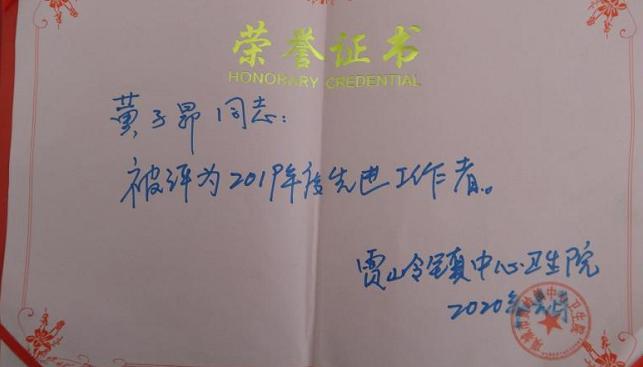 荣誉证书
HONORARY CREDENTIAL
黄子昴同志：
被评为2019年度先进工作者。
贾岭镇中心卫生院
2020年